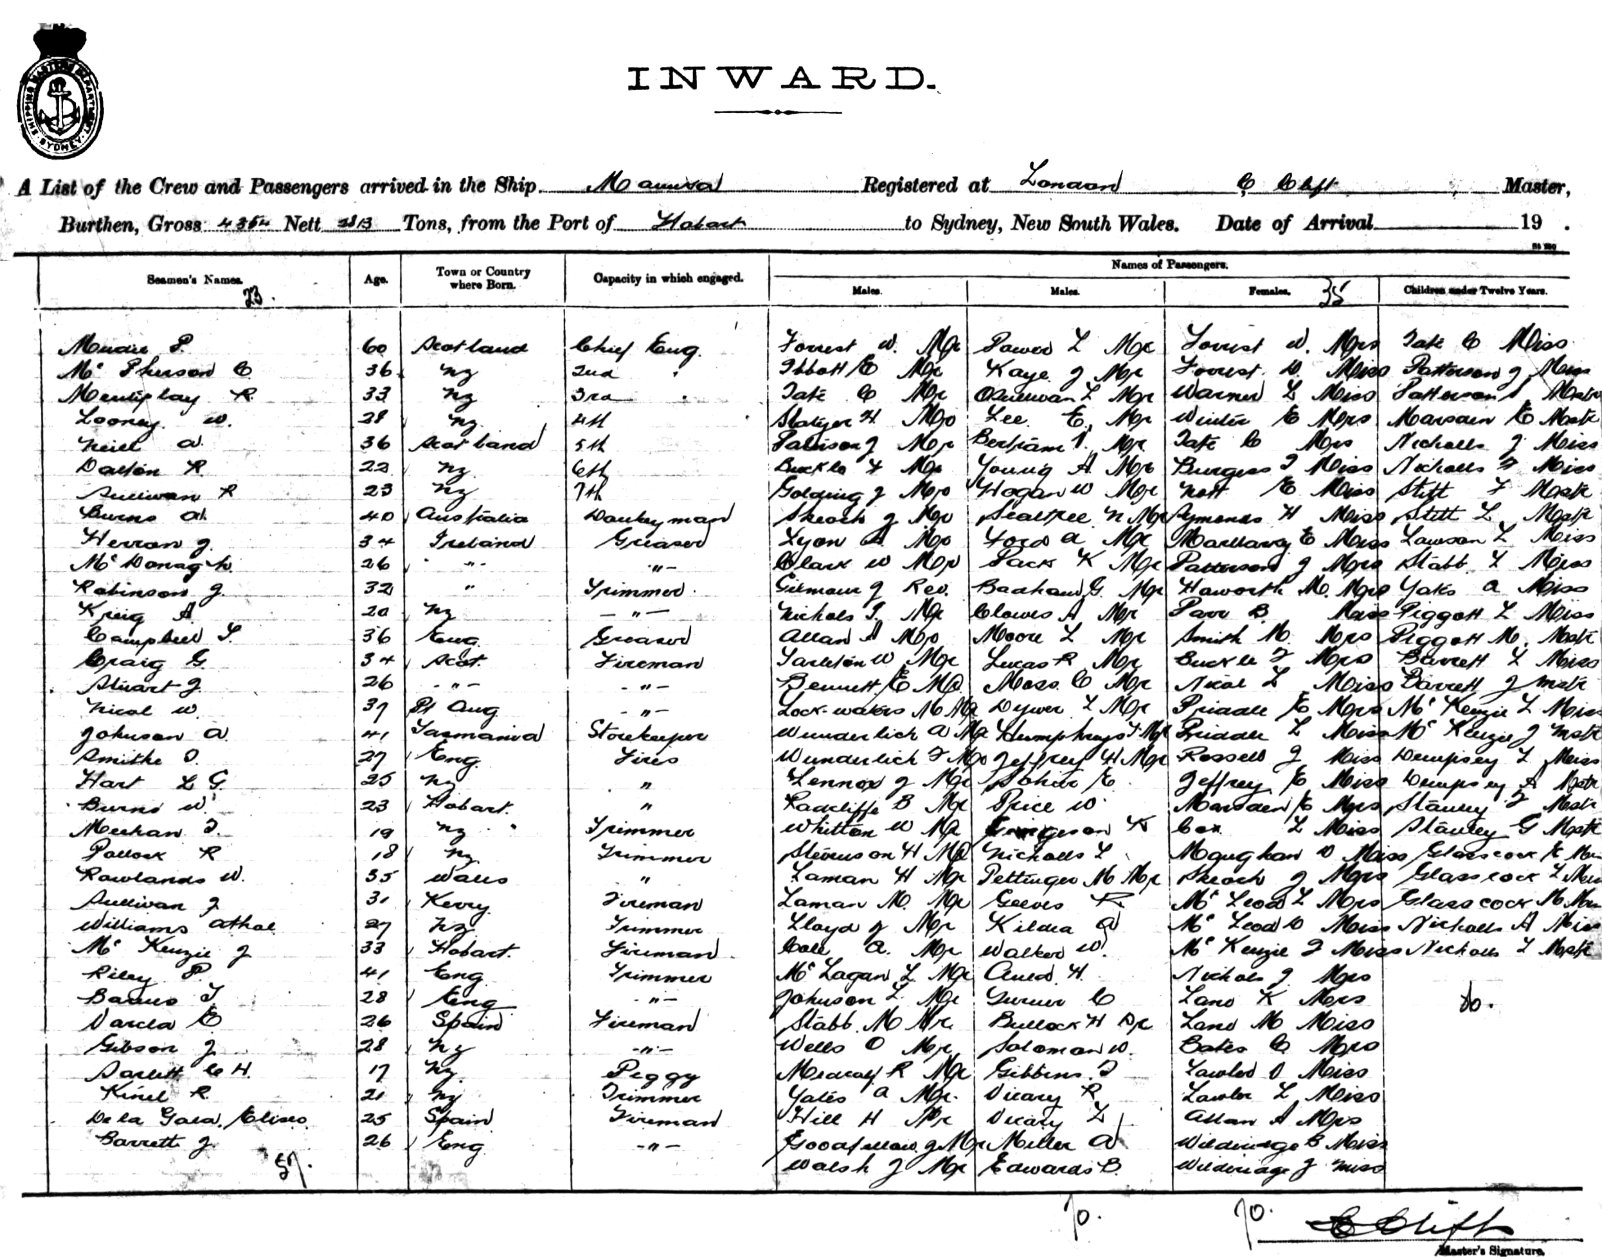 SHIPPING MASTERS DEPARTMENT SYDNEY
INWARD.
A List of the Crew and Passengers arrived in the Ship Registered at London C Clift Master,
Burthen, Gross 4364 Nett Tons, from the Port of Hobart to Sydney, New South Wales. Date of Arrival 19 .
Names of Passengers.
Seamen's Names. Age. Town or Country where Born. Capacity in which engaged. Males. Males. Females. Children under Twelve Years.
23. 35
Mudie P. 60 Scotland Chief Eng. Forrest W. Mr Power L Mr Forrest W. Mrs Tate C Miss
Mc Pherson C 36 NZ 2nd " Ibbott E Mr Kaye J Mr Forrest W. Miss Patterson J Miss
Mentiplay R 33 NZ 3rd " Tate C Mr L Mr Warner L Miss Patterson
Looney W. 28 NZ 4th H Mr Lee E. Mr Winter E Mrs Marsain E Mastr
Neill A. 36 Scotland 5th J Mr Bertram Mr Tate C Mrs Nicholls J Miss
Dalton R 22 NZ 6th Buckle F Mr Young A Mr Burgess F Miss Nicholls F Miss
Sullivan R 23 NZ 7th Golding J Mr Hogan W Mr Nott E Miss Stitt F Mastr
Burns A. 40 Australia Donkeyman Skeoch J Mr N Mr Symonds H Miss Stitt L Mastr
Herron J. 34 Ireland Greaser Lyon A Mr Ford A Mr E Miss Lawson L Miss
Mc Donagh 26 " - " - Clark W Mr Pack K Mr Patterson J Mrs Stabb F Miss
Robinson J. 32 " Trimmer Gilmour J Rev. G Mr Haworth M. Mrs Yates A Miss
Krug A 20 NZ - " - Nichols T. Mr Clowes A Mr Parr B. Miss Piggott L Miss
Campbell T. 36 Eng Greaser Allan A Mr Moore L Mr Smith M Mrs Piggott M. Mastr
Craig G 34 Scot Fireman Tarleton W Mr Lucas R Mr Buckle F Mrs Barrett L Miss
Stuart J. 26 - " - - " - Bennett E Mr Moss C Mr Nicol L Miss Barrett J Mastr
Nicol W. 37 Pt Aug - " - M Mr Dywer L Mr Priddle E Mrs Mc Kenzie L Miss
Johnson A. 41 Tasmania Storekeeper Wunderlich A Mr Humphreys F Mr Priddle L Miss Mc Kenzie J Mastr
Smithe 27 Eng Fires Wunderlich F Mr Jeffrey H Mr Rossell J Miss Dempsey L Miss
Hart L G. 25 NZ " Lennox J Mr E. Jeffrey E Miss Dempsey A Mastr
Burns W. 23 Hobart. " Radcliffe B Mr Price W. Marsden E Mrs Stanley F Mastr
Meehan 19 NZ " Trimmer Whitton W Mr K Cox L Miss Stanley G Mastr
Pollock R 18 NZ Trimmer Stevenson H Mr Nicholls L Maughan D Miss Glasscock E
Rowlands W. 35 Wales " Laman H Mr Pettinger M Mr Skeoch J Mrs Glasscock L
Sullivan J 31 Kerry Fireman Laman M. Mr Geeves R Mc Leod L Mrs Glasscock M
Williams Athol 27 NZ Trimmer Lloyd J Mr Kildea A Mc Leod D Miss Nicholls A Miss
Mc Kenzie J 33 Hobart. Fireman Cole A. Mr Walker W. Mc Kenzie F Miss Nicholls L Mastr
Riley P. 41 Eng Trimmer Mc Lagan L Mr H. Nichols J. Mrs
Barnes T. 28 Eng - " - Johnson L Mr Gurner C Lane K Mrs
Varela E 26 Spain Fireman Stabb M Mr Bullock H Dr Lane M Miss
Gibson J 28 NZ - " - Wells O Mr Solomon W. Bates C Mrs
C H. 17 NZ Peggy Medcalf R Mr Gibbins Lawler D Miss
R 21 NZ Trimmer Yates A Mr. Vicary R Lawler L Miss
De la Gala Eliseo 25 Spain Fireman Hill H Mr Vicary L Allan A Mrs
Barrett J. 26 Eng - " - Goodfellow J Mr Miller A Wilderidge B Miss
57. Walsh J Mr Edwards B. Wilderidge J Miss
70. 70.
C Clift
Master's Signature.